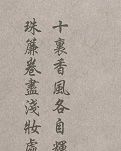 十裏香風各自擇
珠簾卷盡淺妝處